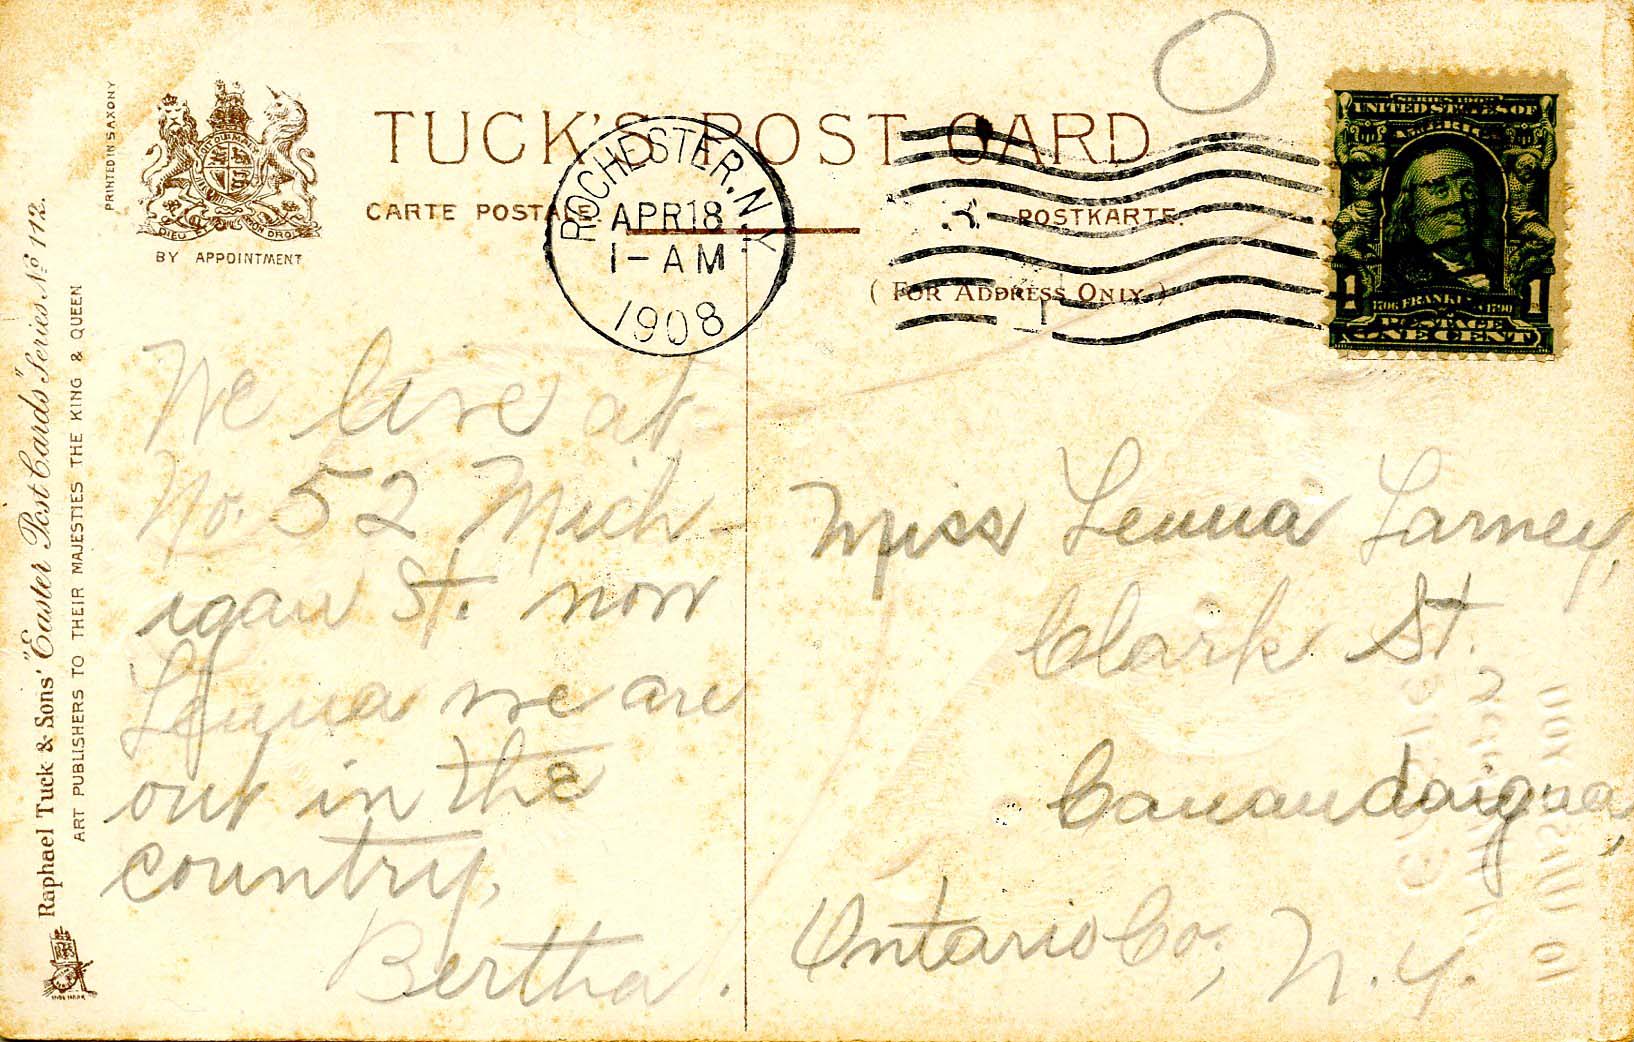 PRINTED IN SAXONY
DIEU ET MON DROIT
BY APPOINTMENT
TUCK'S POST CARD
CARTE POSTALE
POSTKARTE
( FOR ADDRESS ONLY. )
ROCHESTER, N.Y.
APR 18
1 - AM
1908
SERIES 1902
UNITED STATES OF
AMERICA
1706 FRANKLIN 1790
1 POSTAGE 1
ONE CENT
Raphael Tuck & Sons' "Easter Post Cards" Series No 112.
ART PUBLISHERS TO THEIR MAJESTIES THE KING & QUEEN
We live at
No. 52 Mich-
igan St. now
Lenna we are
out in the
country.
Bertha.
Miss Lenna Larney,
Clark St.
Canandaigua,
Ontario Co., N.Y.